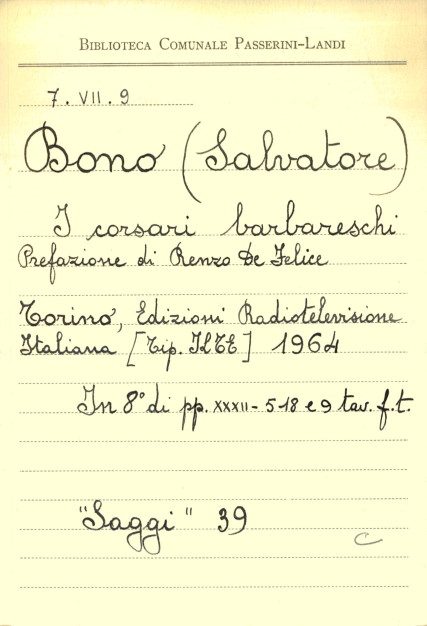 BIBLIOTECA COMUNALE PASSERINI-LANDI
7. VII. 9
Bono (Salvatore)
I corsari barbareschi
Prefazione di Renzo De Felice
Torino, Edizioni Radiotelevisione
Italiana [Tip. ILTE] 1964
In 8° di pp. XXXII - 518 e 9 tav. f.t.
"Saggi" 39
C